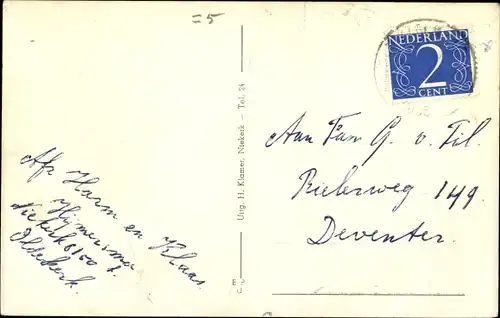 =5
Afz Harm en Klaas
Hijmersma
Niekerk
Oldekerk.
Uitg. H. Klamer, Niekerk — Tel. 24
NEDERLAND
2
CENT
Aan Fam G. v. Til.
Rielerweg 149.
Deventer.